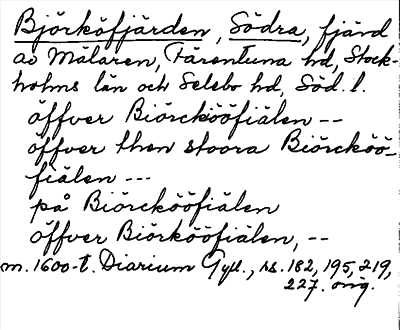 Björköfjärden, Södra, fjärd
av Mälaren, Färentuna hd, Stock-
holms län och Selebo hd, Söd. l.
öffver Biörckööfiälen --
öffver then stoora Biörcköö-
fiälen ---
på Biörckööfiälen
öffver Biörkööfiälen, --
m. 1600-t. Diarium Gyll., ss. 182, 195, 219,
227. orig.